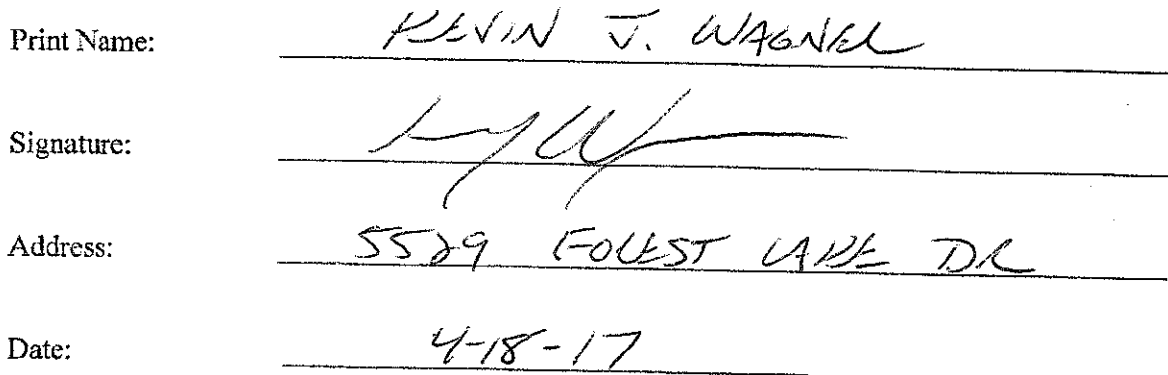 Print Name: KEVIN J. WAGNER
Signature:
Address: 5529 FOREST LAKE DR
Date: 4-18-17